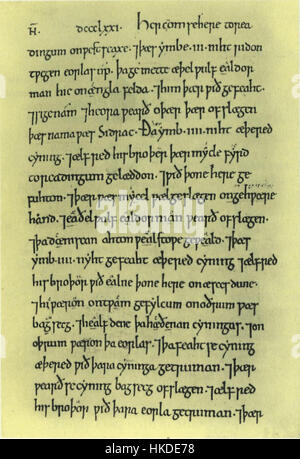 dccclxxi. Her com se here to rea
dingum on westseaxe. ⁊ þæs ymbe .iii. niht ridon
twegen eorlas up. þa gemette æþelwulf ealdor
man hie on engla felda. ⁊ him þær wið gefeaht.
⁊ sige nam. ⁊ heora wearð oþær þær ofslægen
þæs nama wæs Sidrac. Ða ymb .iiii. niht æþered
cyning. ⁊ ælfred his broþer þær mycle fyrd
to readingum gelæddon. ⁊ wið þone here ge
fuhton. ⁊ þær wæs mycel wæl geslægen on gehwæþre
hand. ⁊ æðelwulf ealdorman wearð ofslægen.
⁊ þa deniscan ahton wealstowe geweald. ⁊ þæs
ymb .iiii. nyht gefeaht æþered cyning ⁊ ælfred
his broþor wið ealne þone here on æscesdune.
⁊ hi wæron on twam gefylcum on oðrum wæs
bagsecg. ⁊ healfdene þa hæðenan cyningas. ⁊ on
oþrum wæron þa eorlas. ⁊ þa feaht se cyning
æþered wið þara cyninga getruman. ⁊ þær
wearð se cyning bagsecg ofslægen. ⁊ ælfred
his broþor wið þara eorla getruman. ⁊ þær
alamy
Image ID: HKDE78
www.alamy.com